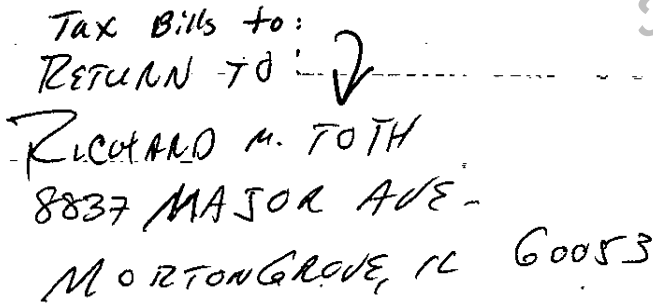 Tax Bills to:
RETURN TO:
RICHARD M. TOTH
8837 MAJOR AVE.
MORTON GROVE, IL 60053